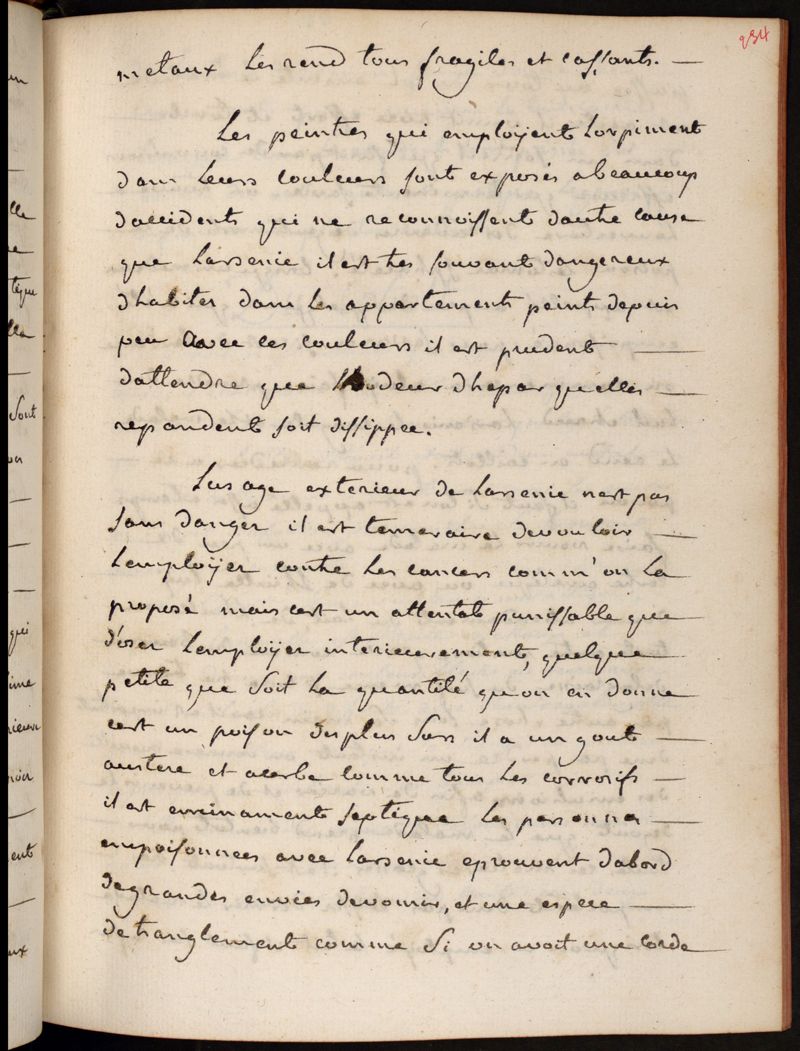 234
metaux les rend tous fragiles et cassants. —
Les peintres qui employent Lorpiment
dans leurs couleurs sont exposés abeaucoup
daccidents qui ne reconnoissent dautre cause
que Larsenic il est tres souvant dangereux
dhabiter dans les appartements peints depuis
peu avec ces couleurs il est prudent —
dattendre que lodeur dhepar quelles —
repandent soit dissippee.
Lusage exterieur de Larsenic nest pas
sans danger il est temeraire devouloir —
Lemployer contre les cancers comm' on la
proposé mais cest un attentat punissable que
d'oser Lemployer interieurement, quelque
petite que soit la quantité quon en donne
cest un poison des plus surs il a un gout —
austere et acerbe comme tous les corrosifs —
il est septique les personnes —
empoisonnees avec Larsenic eprouvent dabord
degrandes envies devomir, et une espece —
detranglement comme si on avoit une corde
lle
tique
lla
sont
qui
ent